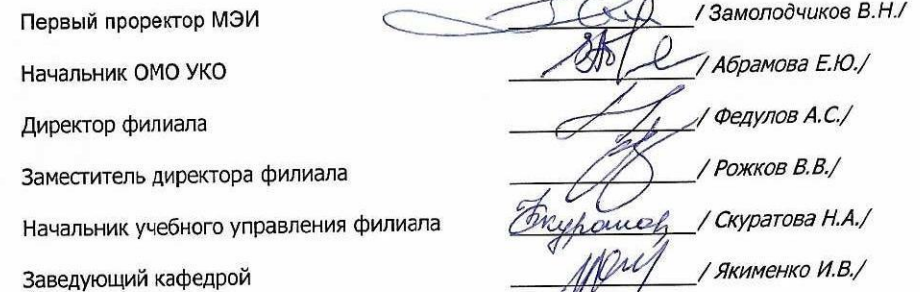 Первый проректор МЭИ / Замолодчиков В.Н./
Начальник ОМО УКО / Абрамова Е.Ю./
Директор филиала / Федулов А.С./
Заместитель директора филиала / Рожков В.В./
Начальник учебного управления филиала / Скуратова Н.А./
Заведующий кафедрой / Якименко И.В./